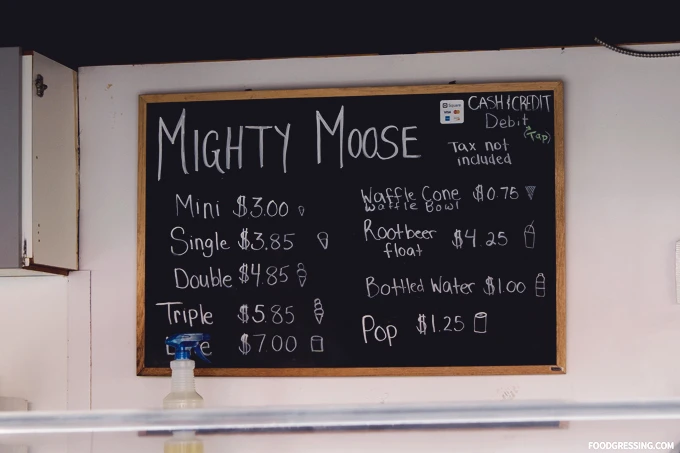 MIGHTY MOOSE
Square
CASH & CREDIT
Debit
(Tap)
Tax not
included
Mini $3.00
Single $3.85
Double $4.85
Triple $5.85
$7.00
Waffle Cone $0.75
Waffle Bowl
Rootbeer
float $4.25
Bottled Water $1.00
Pop $1.25
FOODGRESSING.COM